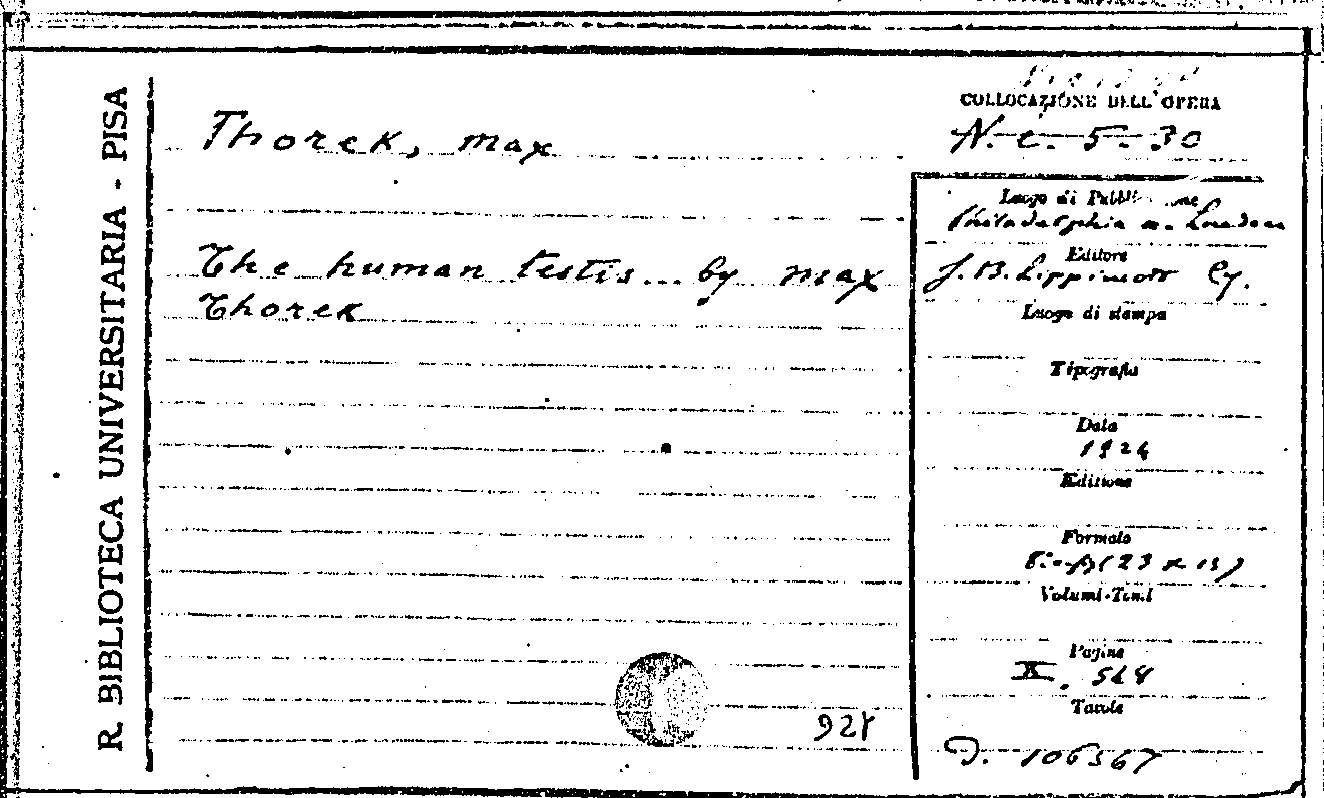 R. BIBLIOTECA UNIVERSITARIA - PISA
Thorek, Max
The human testis... by Max
Thorek
928
COLLOCAZIONE DELL'OPERA
N. c. 5. 30
Luogo di Pubblicazione
Philadelphia a. London
Editore
J. B. Lippincott Cy.
Luogo di stampa
Tipografia
Data
1924
Edizione
Formato
(23 x 15)
Volumi-Tomi
Pagine
X. 548
Tavole
D. 106567